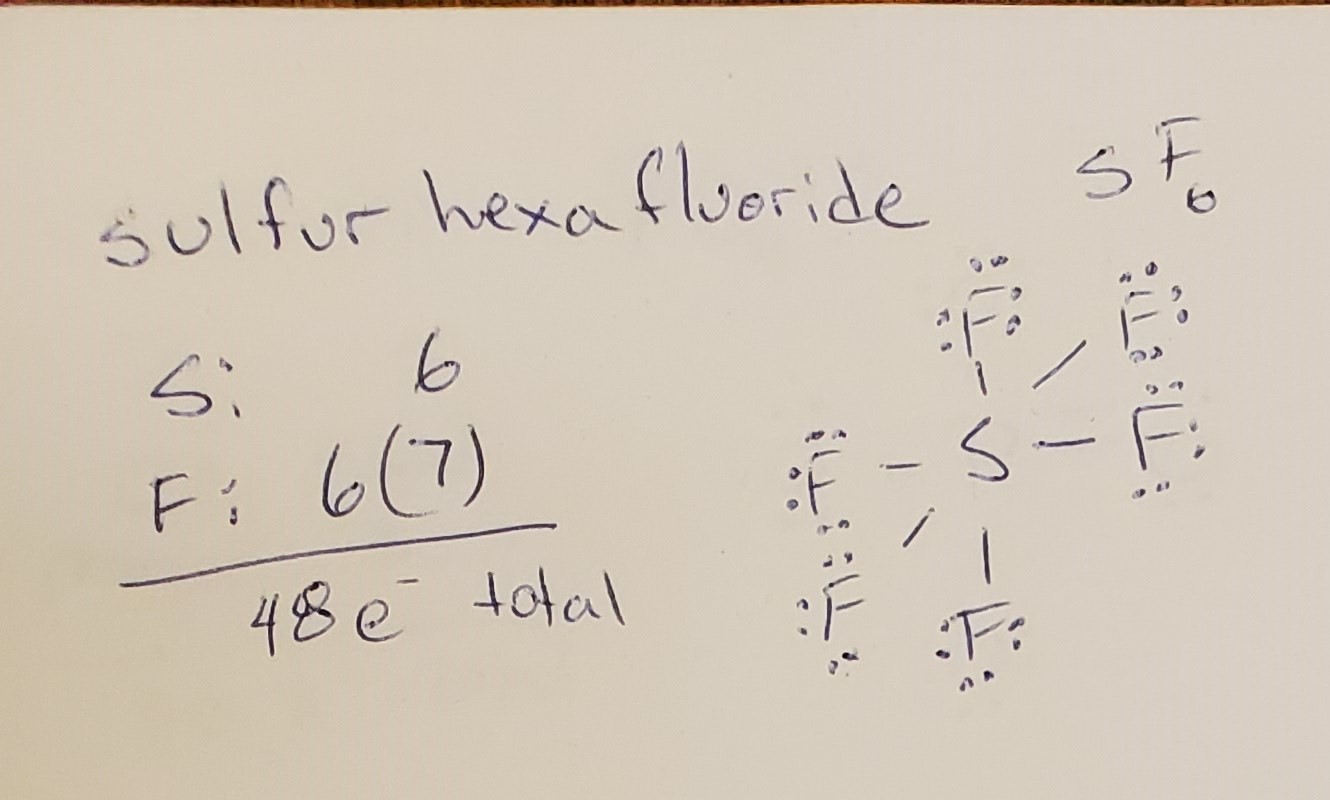 sulfur hexafluoride SF₆
S: 6
F: 6(7)
48e⁻ total
F F
F - S - F
F F